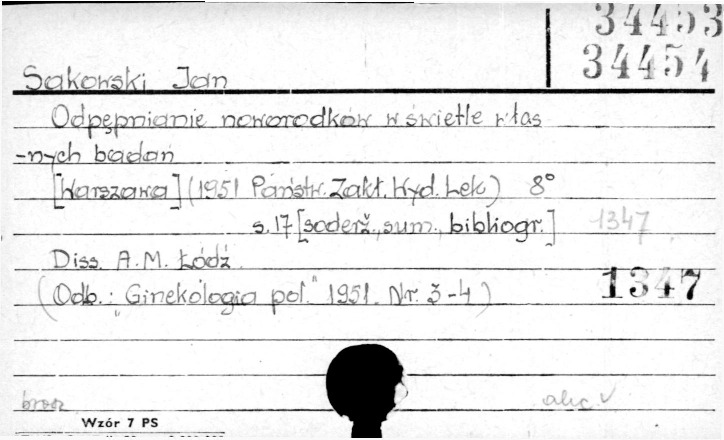 34453
34454
Sakowski Jan
Odpępnianie noworodków w świetle włas
-nych badań
[Warszawa] (1951 Państw. Zakł. Wyd. Lek.) 8°
s. 17 [soderž., sum., bibliogr.] 1347
Diss. A.M. Łódź.
(Odb.: "Ginekologia pol." 1951. Nr. 3-4) 1347
brosz
Wzór 7 PS